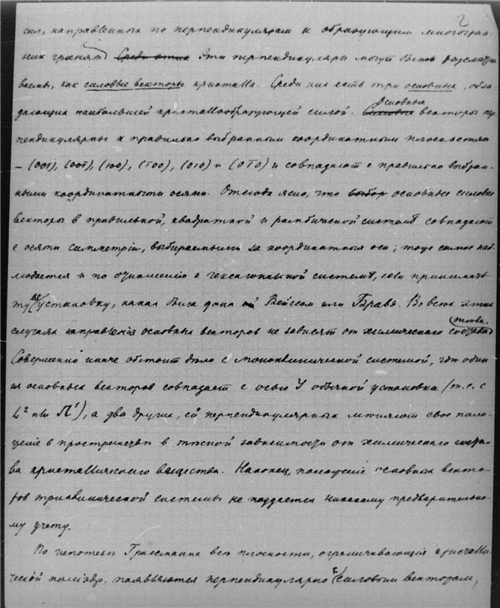 2
сил, направленных по перпендикулярам к образующим многогран
ник граням) Среди этих Эти перпендикуляры могут быть рассматри
ваемы, как силовые векторы кристалла. Среди них есть три основных, обла
дающих наибольшей кристаллообразующей силой. Основные векторы пер
пендикулярны к правильно выбранным координатным плоскостям
– (001), (001), (100), (100), (010) и (010) и совпадают с правильно выбран
ными координатными осями. Отсюда ясно, что выбор основные силовые
векторы в правильной, квадратной и ромбической системах совпадают
с осями симметрии, выбираемыми за координатные оси; тоже самое наб
людается и по отношению к гексагональной системе, если принимать
ту же установку, какая была дана Вейсом или Браве. Во всех этих
случаях направления основных векторов не зависят от химического состава
Совершенно иначе обстоит дело с моноклинической системой, где один
из основных векторов совпадает с осью У обычной установки (т.е. с
L² или П'), а два другие, ей перпендикулярных меняют свое поло
жение в пространстве в тесной зависимости от химического соста
ва кристаллического вещества. Наконец, положение основных векто
ров триклинической системы не поддается никакому предварительно
му учету.
По гипотезе Грассманна все плоскости, ограничивающие кристалли
ческой полиэдр, появляются перпендикулярно к силовым векторам,